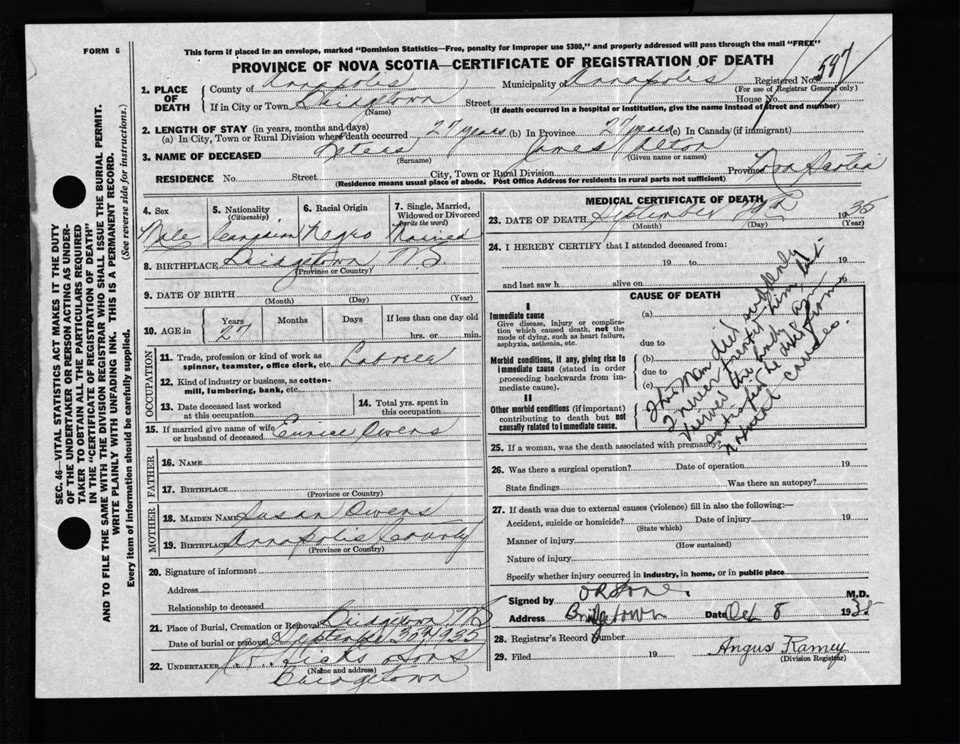 FORM 6
This form if placed in an envelope, marked "Dominion Statistics—Free, penalty for improper use $300," and properly addressed will pass through the mail "FREE"
PROVINCE OF NOVA SCOTIA—CERTIFICATE OF REGISTRATION OF DEATH
SEC. 46—VITAL STATISTICS ACT MAKES IT THE DUTY
OF THE UNDERTAKER OR PERSON ACTING AS UNDER-
TAKER TO OBTAIN ALL THE PARTICULARS REQUIRED
IN THE "CERTIFICATE OF REGISTRATION OF DEATH"
AND TO FILE THE SAME WITH THE DIVISION REGISTRAR WHO SHALL ISSUE THE BURIAL PERMIT.
WRITE PLAINLY WITH UNFADING INK. THIS IS A PERMANENT RECORD.
Every item of information should be carefully supplied. (See reverse side for instructions.)
1. PLACE OF DEATH
County of Annapolis Municipality of Annapolis Registered No. 587
(For use of Registrar General only)
If in City or Town Bridgetown Street House No.
(Name) (If death occurred in a hospital or institution, give the name instead of street and number)
2. LENGTH OF STAY (in years, months and days)
(a) In City, Town or Rural Division where death occurred 27 years (b) In Province 27 years (c) In Canada (if immigrant)
3. NAME OF DECEASED Peters James
(Surname) (Given name or names)
RESIDENCE No. Street City, Town or Rural Division Province Nova Scotia
(Residence means usual place of abode. Post Office Address for residents in rural parts not sufficient)
4. Sex Male
5. Nationality (Citizenship) Canadian
6. Racial Origin Negro
7. Single, Married, Widowed or Divorced (write the word) Married
8. BIRTHPLACE Bridgetown N.S.
(Province or Country)
9. DATE OF BIRTH
(Month) (Day) (Year)
10. AGE in Years 27 Months Days If less than one day old hrs. or min.
OCCUPATION
11. Trade, profession or kind of work as spinner, teamster, office clerk, etc. Laborer
12. Kind of industry or business, as cotton-mill, lumbering, bank, etc.
13. Date deceased last worked at this occupation
14. Total yrs. spent in this occupation
15. If married give name of wife or husband of deceased Eunice Owens
FATHER
16. NAME
17. BIRTHPLACE
(Province or Country)
MOTHER
18. MAIDEN NAME Susan Owens
19. BIRTHPLACE Annapolis County
(Province or Country)
20. Signature of informant
Address
Relationship to deceased
21. Place of Burial, Cremation or Removal Bridgetown N.S.
Date of burial or removal September 30th 1935
22. UNDERTAKER Hicks Sons
(Name and address)
Bridgetown
MEDICAL CERTIFICATE OF DEATH
23. DATE OF DEATH September 1935
(Month) (Day) (Year)
24. I HEREBY CERTIFY that I attended deceased from:
19 to 19
and last saw h alive on 19
CAUSE OF DEATH
I
Immediate cause
Give disease, injury or complication which caused death, not the mode of dying, such as heart failure, asphyxia, asthenia, etc.
(a)
due to
Morbid conditions, if any, giving rise to immediate cause (stated in order proceeding backwards from immediate cause).
(b)
due to
(c)
II
Other morbid conditions (if important) contributing to death but not causally related to immediate cause.
This Man died suddenly
I never treated him, but
viewed the body am
satisfied he died from
natural causes.
25. If a woman, was the death associated with pregnancy?
26. Was there a surgical operation? Date of operation 19
State findings Was there an autopsy?
27. If death was due to external causes (violence) fill in also the following:—
Accident, suicide or homicide? Date of injury 19
(State which)
Manner of injury
(How sustained)
Nature of injury
Specify whether injury occurred in industry, in home, or in public place
Signed by M.D.
Address Bridgetown Date Oct 8 1935
28. Registrar's Record Number
29. Filed 19 Angus Ramey
(Division Registrar)